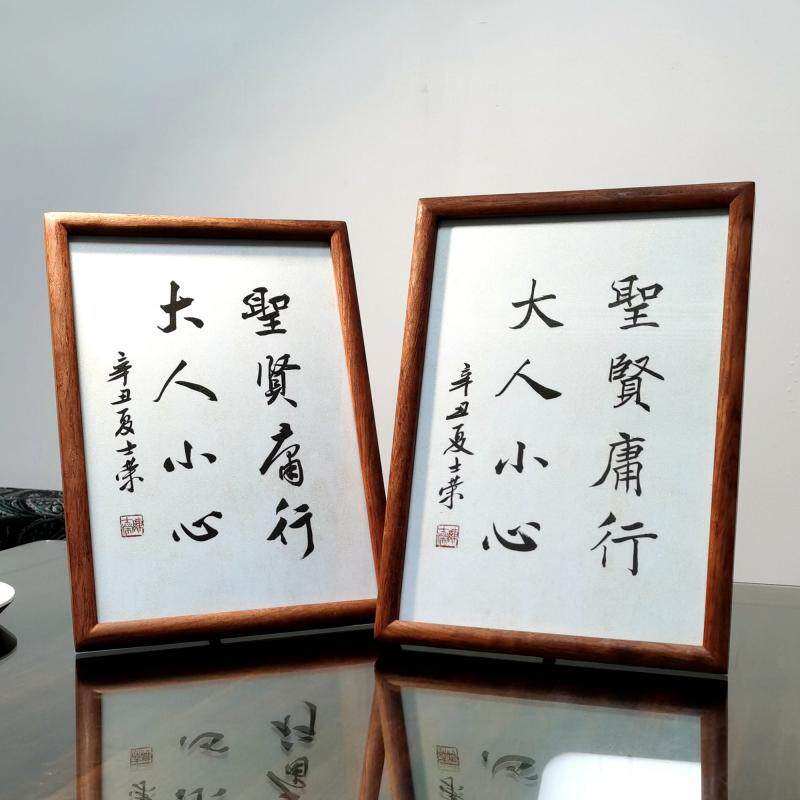 聖賢庸行
大人小心
辛丑夏士荣
聖賢庸行
大人小心
辛丑夏士荣